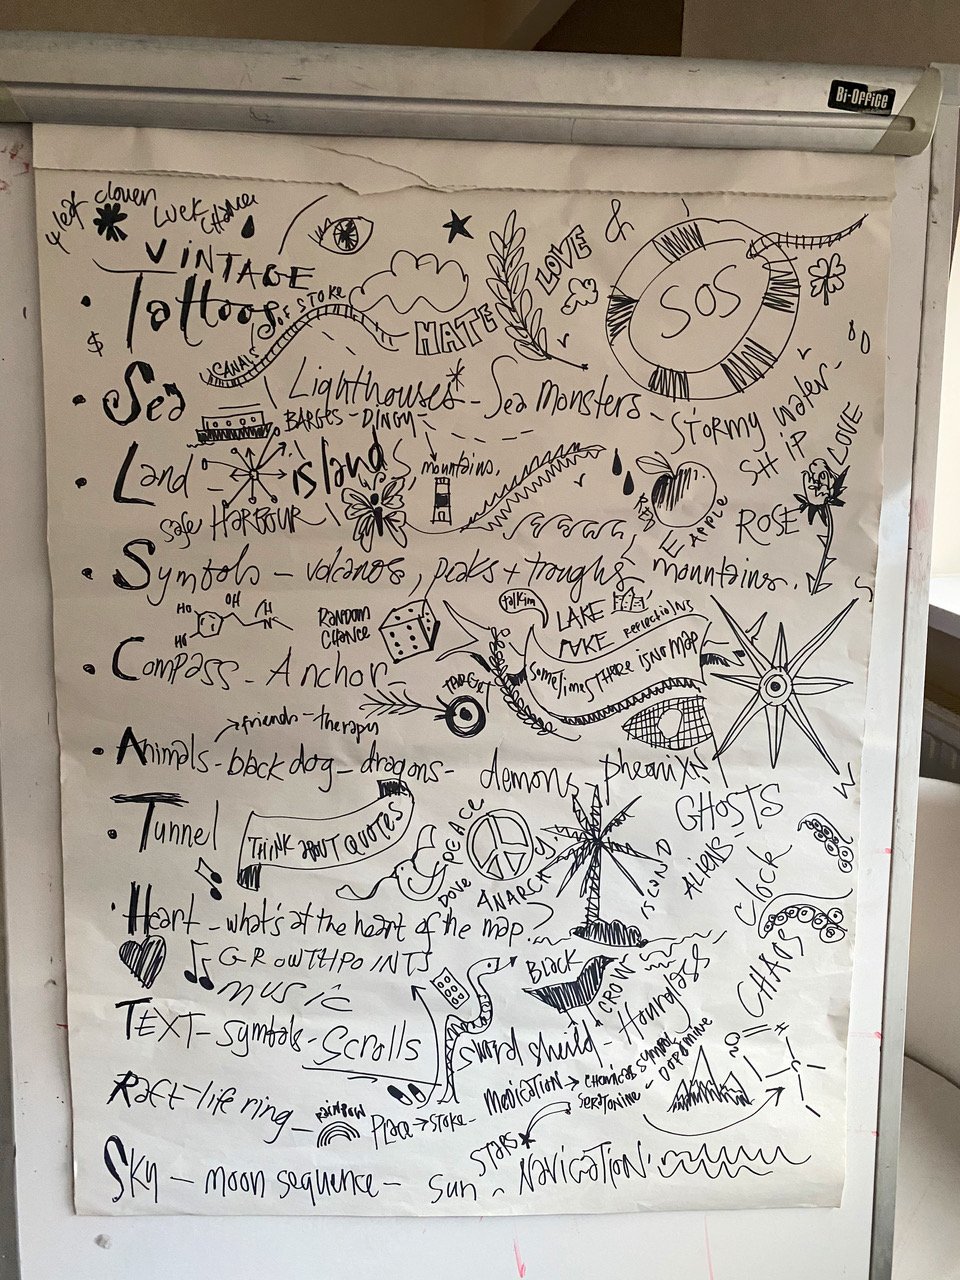 Bi-Office
4 leaf clover
Luck chance
VINTAGE
Tattoos
$
CANALS OF STOKE
HATE
LOVE
&
SOS
Sea
Lighthouses - Sea monsters - Stormy water -
BARGES - DINGY -
SHIP
Land - islands, mountains,
LOVE
Safe HARBOUR
RED
APPLE
ROSE
Symbols - volcanos, peaks + troughs
mountains.
HO
OH
HO
H
N
RANDOM
CHANCE
talkin
LAKE
REFLECTIONS
Compass - Anchor -
TARGET
SOMETIMES THERE IS NO MAP
friends - therapy
Animals - black dog - dragons - demons, pheonix
Tunnel
THINK ABOUT QUOTES
DOVE
PEACE
ANARCHY
GHOSTS
ALIENS -
CLOCK
Heart - what's at the heart of the map?
GROWTH POINTS
MUSIC
BLACK
CROW
CHAOS
TEXT - symbols - Scrolls
sword sheild - Hourglass
Raft - life ring -
RAINBOW
Place → STOKE -
MEDICATION → CHEMICAL SYMBOL
SERATONINE
- DOPAMINE
Sky - moon sequence - sun - NAVIGATION
STARS